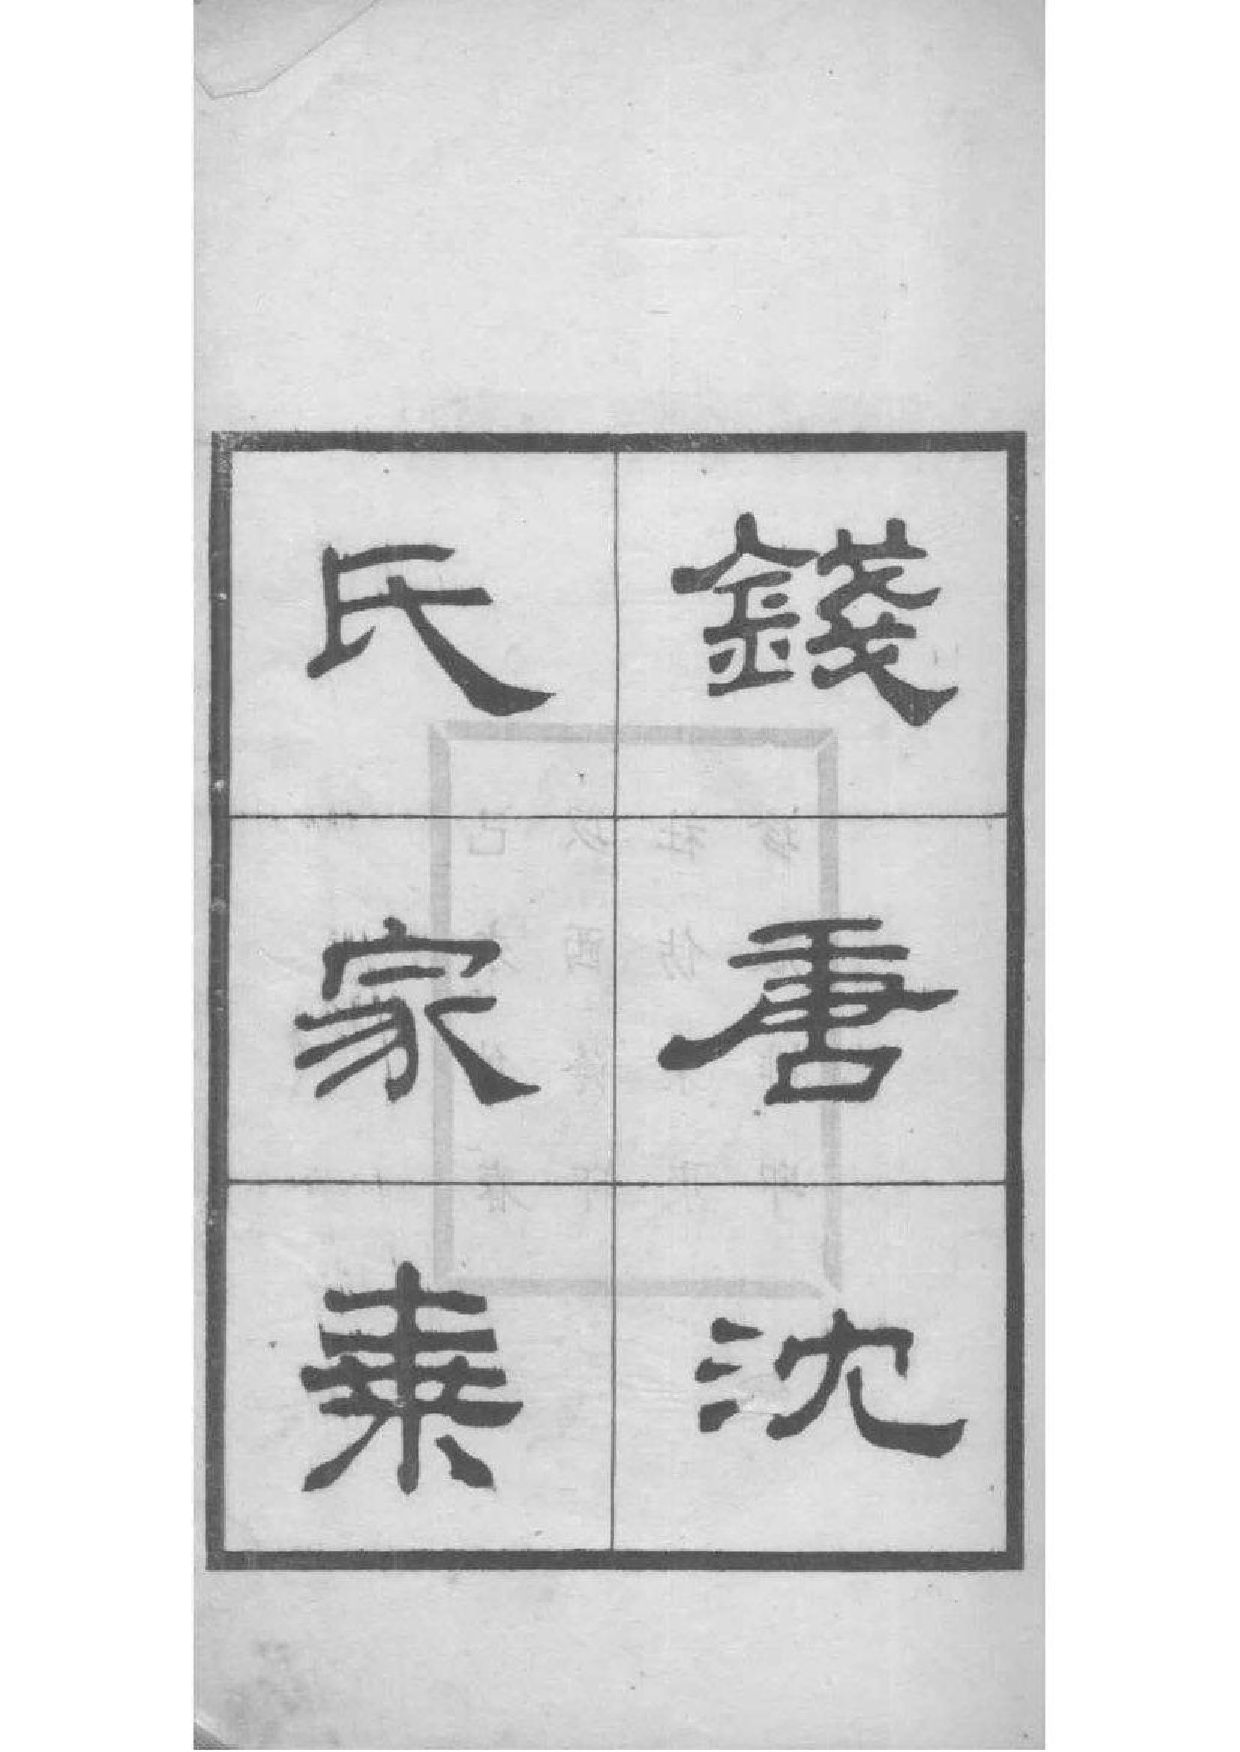 錢唐沈
氏家乘